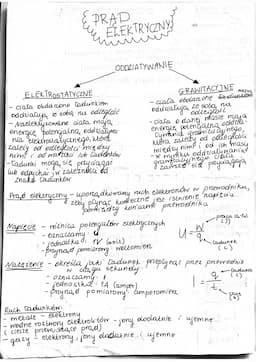 PRĄD
ELEKTRYCZNY
ODDZIAŁYWANIE
ELEKTROSTATYCZNE
- ciała obdarzone ładunkiem
oddziałują ze sobą na odległość
- Naelektryzowane ciała mają
energię potencjalną oddziaływa-
nia elektrostatycznego, która
zależy od odległości między
nimi i od wartości ich ładunków
- Ładunki mogą się przyciągać
lub odpychać w zależności od
znaku ładunków
GRAWITACYJNE
- ciała obdarzone masą
oddziałują ze sobą na
odległość
- ciała o danej masie mają
energię potencjalną oddzia-
ływania grawitacyjnego,
która zależy od odległości
między nimi i od ich masy
- W wyniku oddziaływania
grawitacyjnego ciała
zawsze się przyciągają
Prąd elektryczny - uporządkowany ruch elektronów w przewodniku,
żeby płynąć konieczne jest istnienie napięcia
pomiędzy końcami przewodnika
Napięcie - różnica potencjałów elektrycznych
- oznaczamy U
- jednostka: 1V (wolt)
- przyrząd pomiarowy: woltomierz
U = W/q
praca
ładunek
(C)
Natężenie - określa jaki ładunek przepływa przez przewodnik
w ciągu sekundy
- oznaczamy: I
- jednostka: 1A (amper)
- przyrząd pomiarowy: amperomierz
I = q/t
ładunek
(C)
czas
(s)
Ruch ładunków:
- metale - elektrony
- wodne roztwory elektrolitów - jony dodatnie i ujemne
(ciecze przewodzące prąd)
- gazy - elektrony, jony dodatnie i ujemne